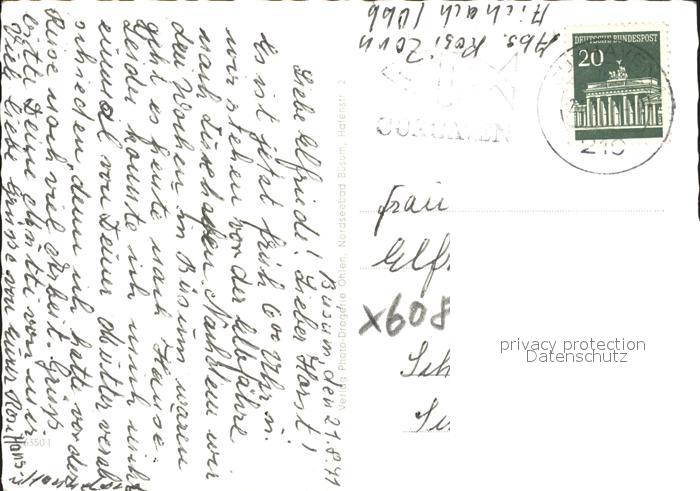 Büsum, den 21.8.71
Liebe Elfriede! Lieber Horst!
Es ist jetzt früh 6 00 Uhr u.
wir stehen vor der Elbfähre
nach Cuxhaven. Nachdem wir
drei Wochen in Büsum waren
geht es heute nach Hause.
Leider konnte ich mich nicht
einmal von Deiner Mutter verab-
schieden, denn ich hatte vor der
Reise noch viel Arbeit. Grüß
bitte Deine Mutti von mir
liebe Grüsse von Eurer Rosi
Verlag Photo-Drogerie Ohlen, Nordseebad Büsum, Hafenstr. 2
6350 I
Abs. Rosi Zorn
DEUTSCHE BUNDESPOST
20
CUXHAVEN
219
Frau
Elf
X608
Sch
privacy protection
Datenschutz